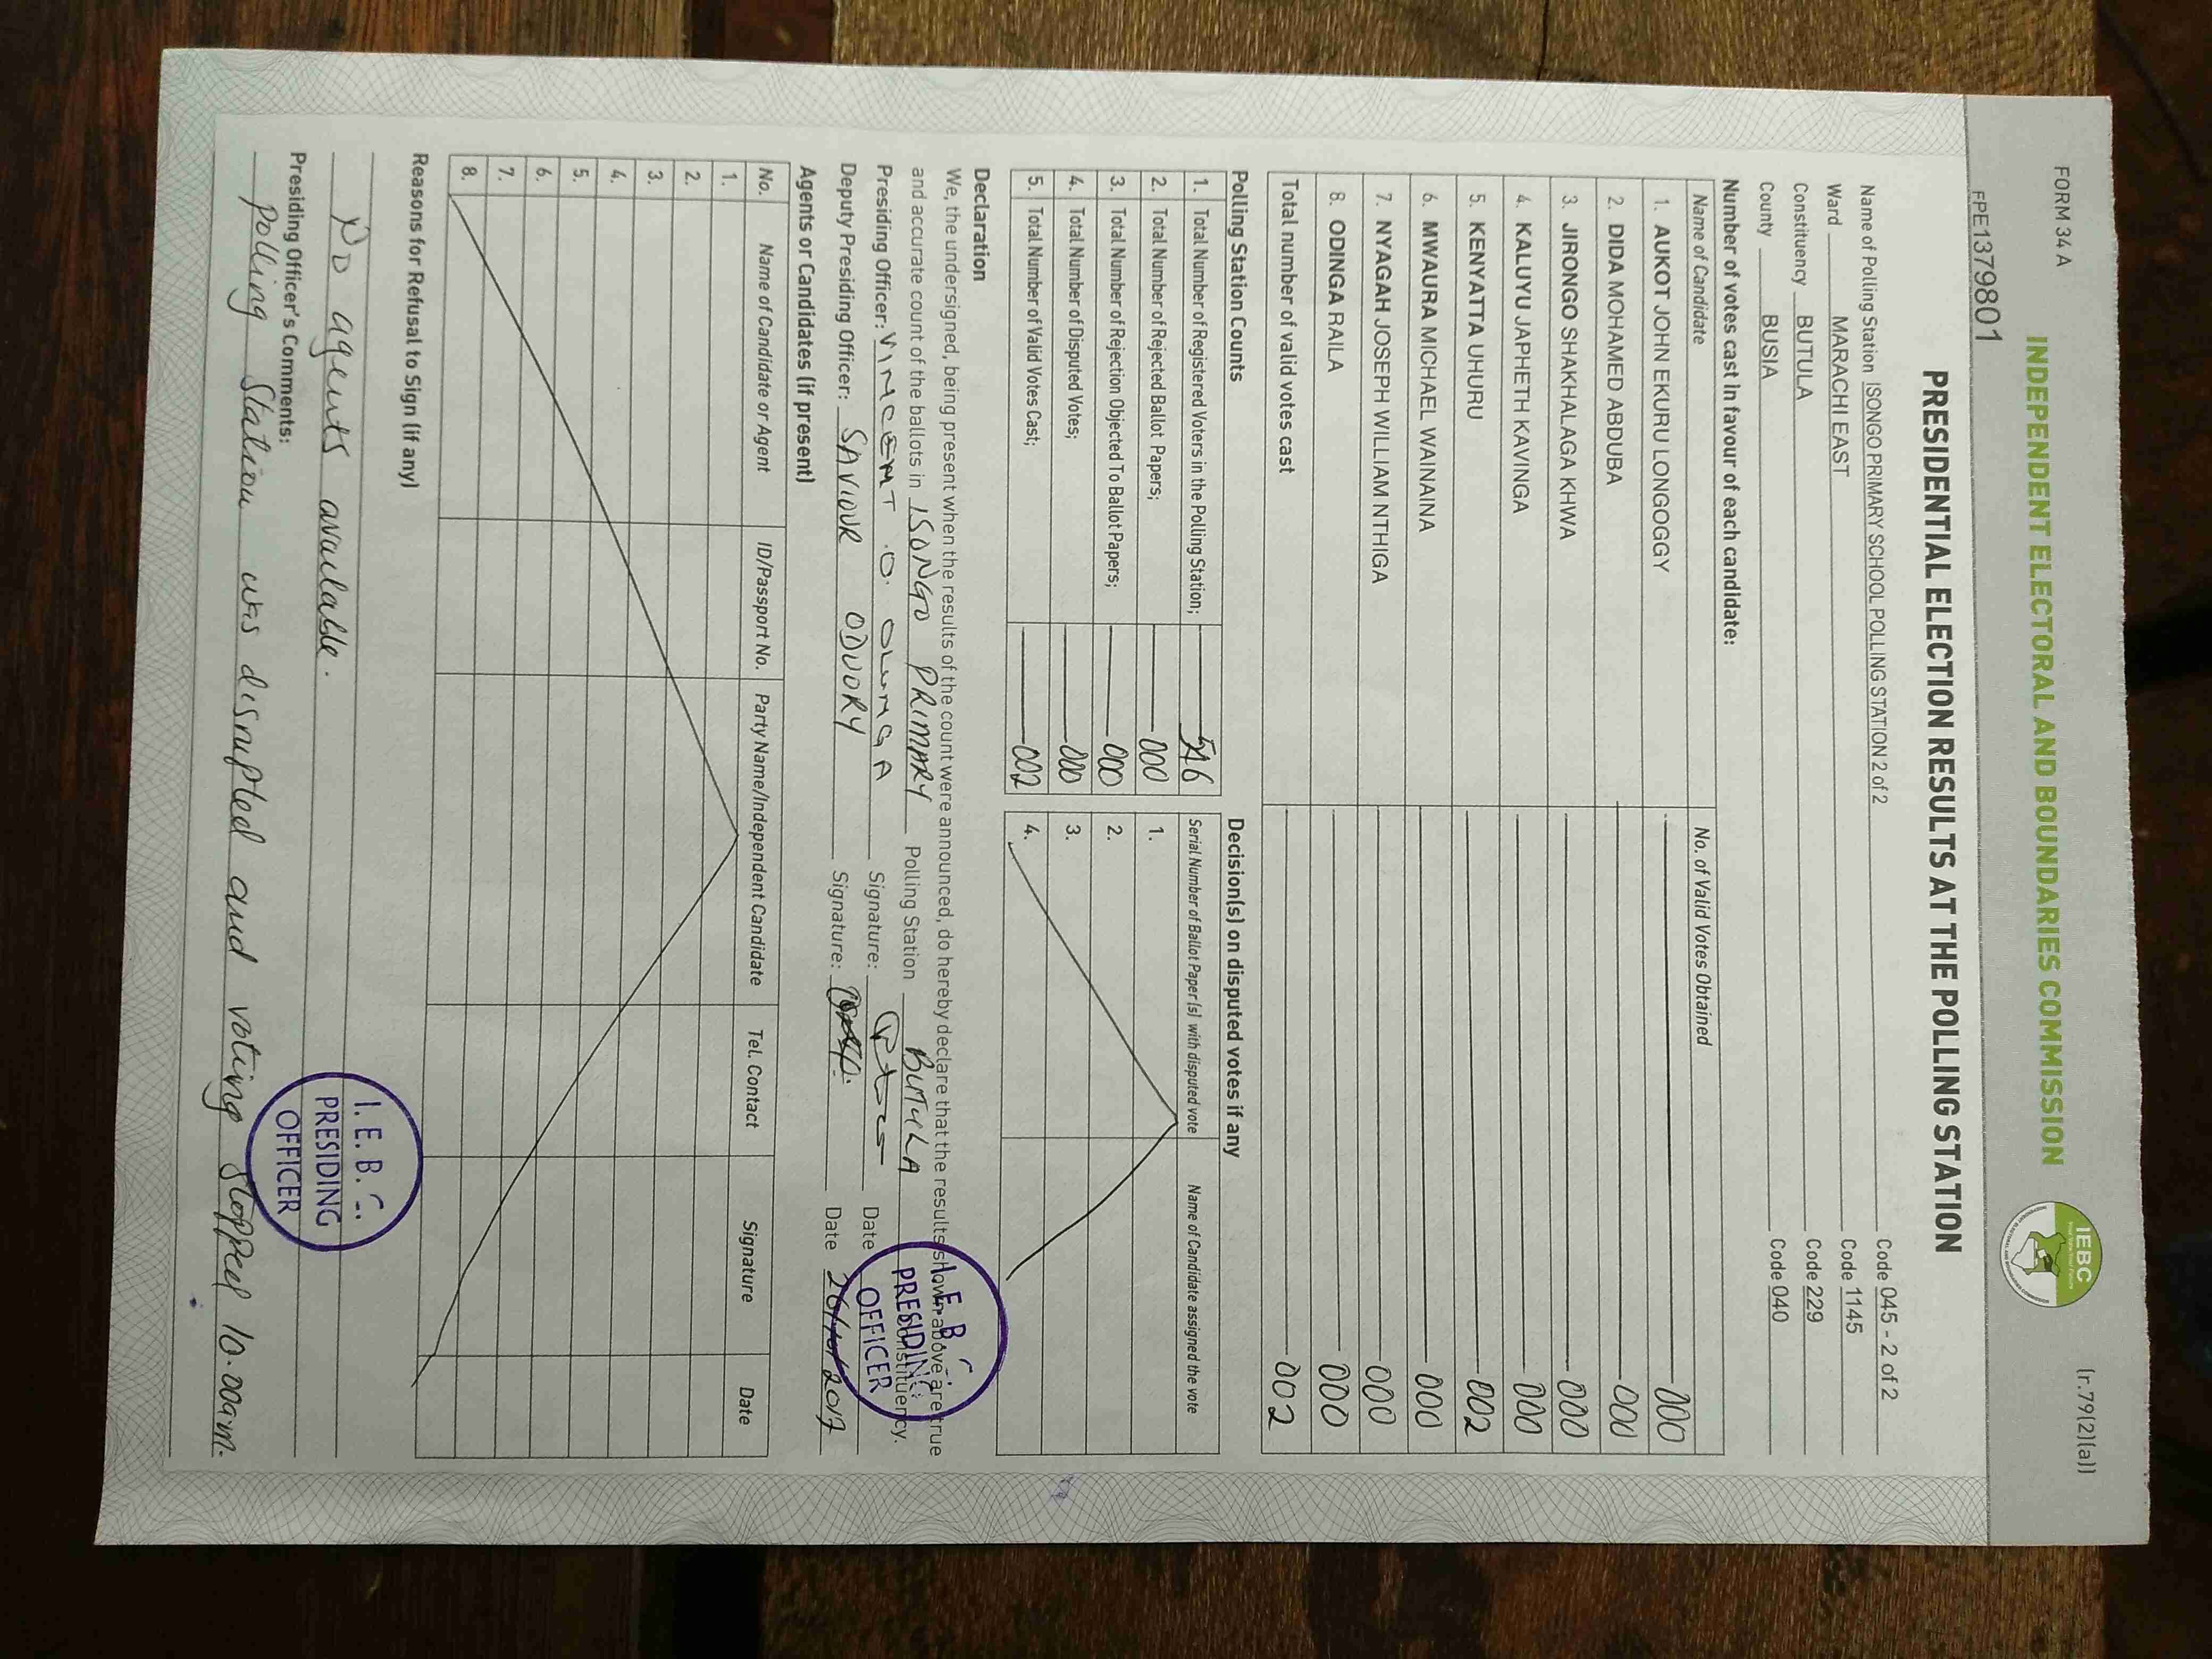 FORM 34 A
(r.79(2)(a))
INDEPENDENT ELECTORAL AND BOUNDARIES COMMISSION
IEBC
FPE1379801
PRESIDENTIAL ELECTION RESULTS AT THE POLLING STATION
Name of Polling Station ISONGO PRIMARY SCHOOL POLLING STATION 2 of 2 Code 045 - 2 of 2
Ward MARACHI EAST Code 1145
Constituency BUTULA Code 229
County BUSIA Code 040
Number of votes cast in favour of each candidate:
Name of Candidate No. of Valid Votes Obtained
1. AUKOT JOHN EKURU LONGOGGY 000
2. DIDA MOHAMED ABDUBA 000
3. JIRONGO SHAKHALAGA KHWA 000
4. KALUYU JAPHETH KAVINGA 000
5. KENYATTA UHURU 002
6. MWAURA MICHAEL WAINAINA 000
7. NYAGAH JOSEPH WILLIAM NTHIGA 000
8. ODINGA RAILA 000
Total number of valid votes cast 002
Polling Station Counts
1. Total Number of Registered Voters in the Polling Station; 546
2. Total Number of Rejected Ballot Papers; 000
3. Total Number of Rejection Objected To Ballot Papers; 000
4. Total Number of Disputed Votes; 000
5. Total Number of Valid Votes Cast; 002
Decision(s) on disputed votes if any
Serial Number of Ballot Paper (s) with disputed vote Name of Candidate assigned the vote
1.
2.
3.
4.
Declaration
We, the undersigned, being present when the results of the count were announced, do hereby declare that the results shown above are true
and accurate count of the ballots in ISONGO PRIMARY Polling Station BUTULA Constituency.
Presiding Officer: VINCENT O. OLUNGA Signature: Date
Deputy Presiding Officer: SAVIOUR ODUORY Signature: Date 26/10/2017
I. E. B. C.
PRESIDING
OFFICER
Agents or Candidates (if present)
No. Name of Candidate or Agent ID/Passport No. Party Name/Independent Candidate Tel. Contact Signature Date
1.
2.
3.
4.
5.
6.
7.
8.
Reasons for Refusal to Sign (if any)
No agents available.
Presiding Officer's Comments:
polling Station was disrupted and voting stopped 10.00am.
I. E. B. C.
PRESIDING
OFFICER